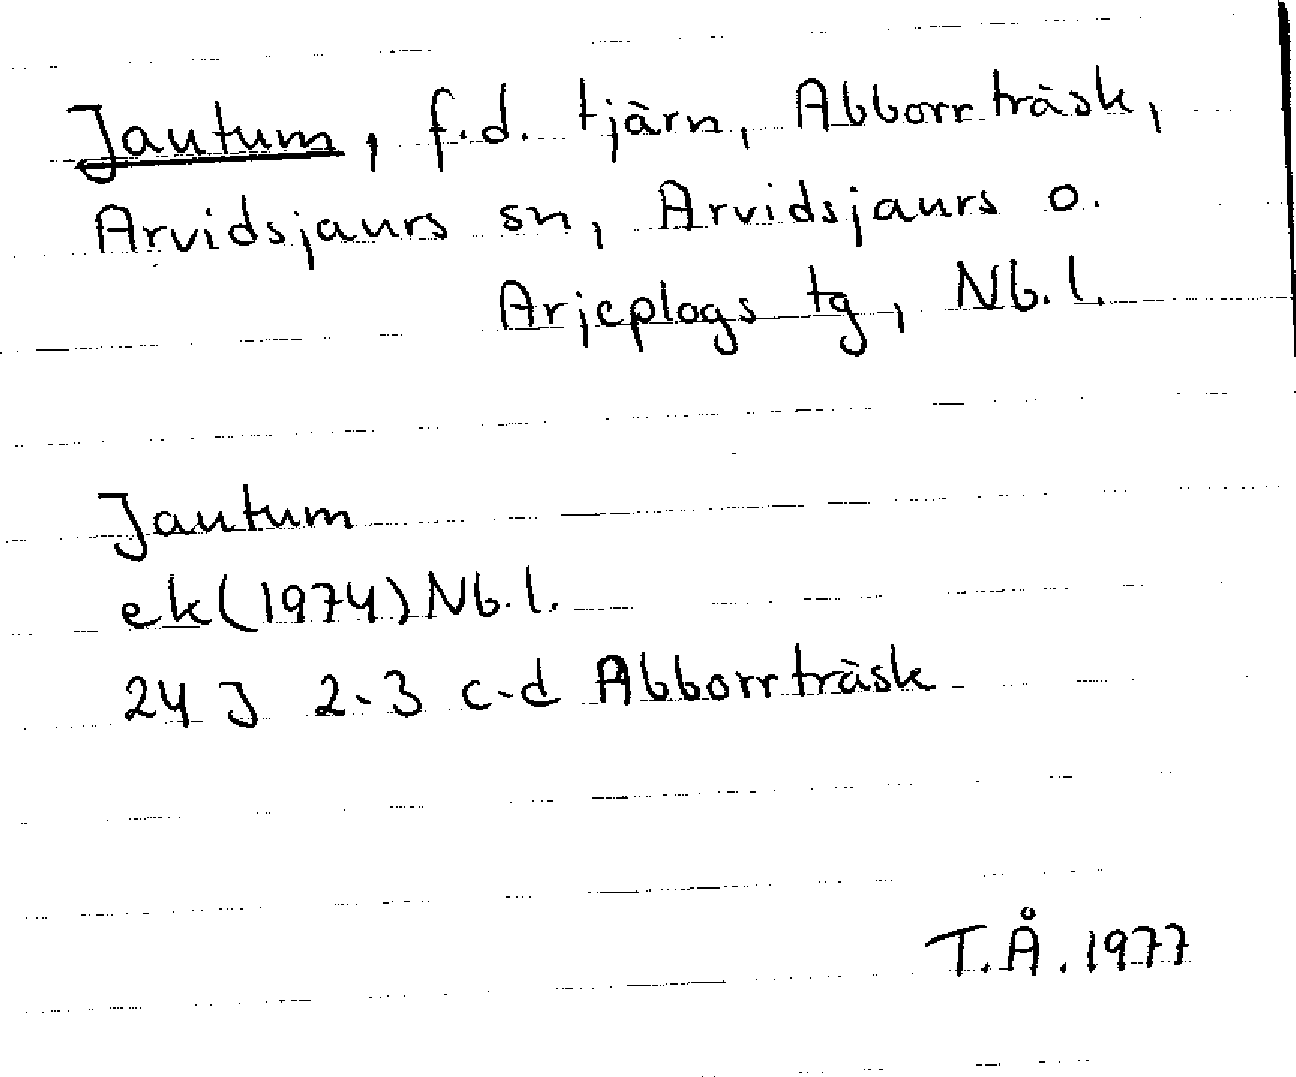 Jautum, f.d. tjärn, Abborrträsk,
Arvidsjaurs sn, Arvidsjaurs o.
Arjeplogs tg, Nb.l.
Jautum
ek (1974) Nb.l.
24 J 2-3 c-d Abborrträsk
T.Å. 1977